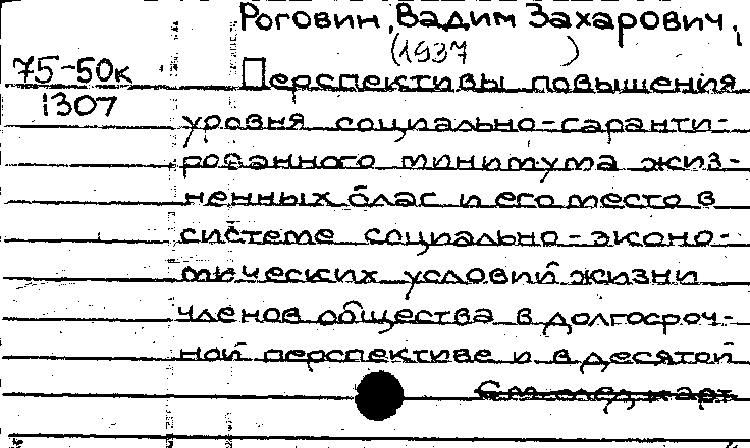 Роговин, Вадим Захарович,
(1937 )
75-50к
1307
Перспективы повышения
уровня социально-гаранти-
рованного минимума жиз-
ненных благ и его место в
системе социально-эконо-
мических условий жизни
членов общества в долгосроч-
ной перспективе и в десятой
См. след. карт.